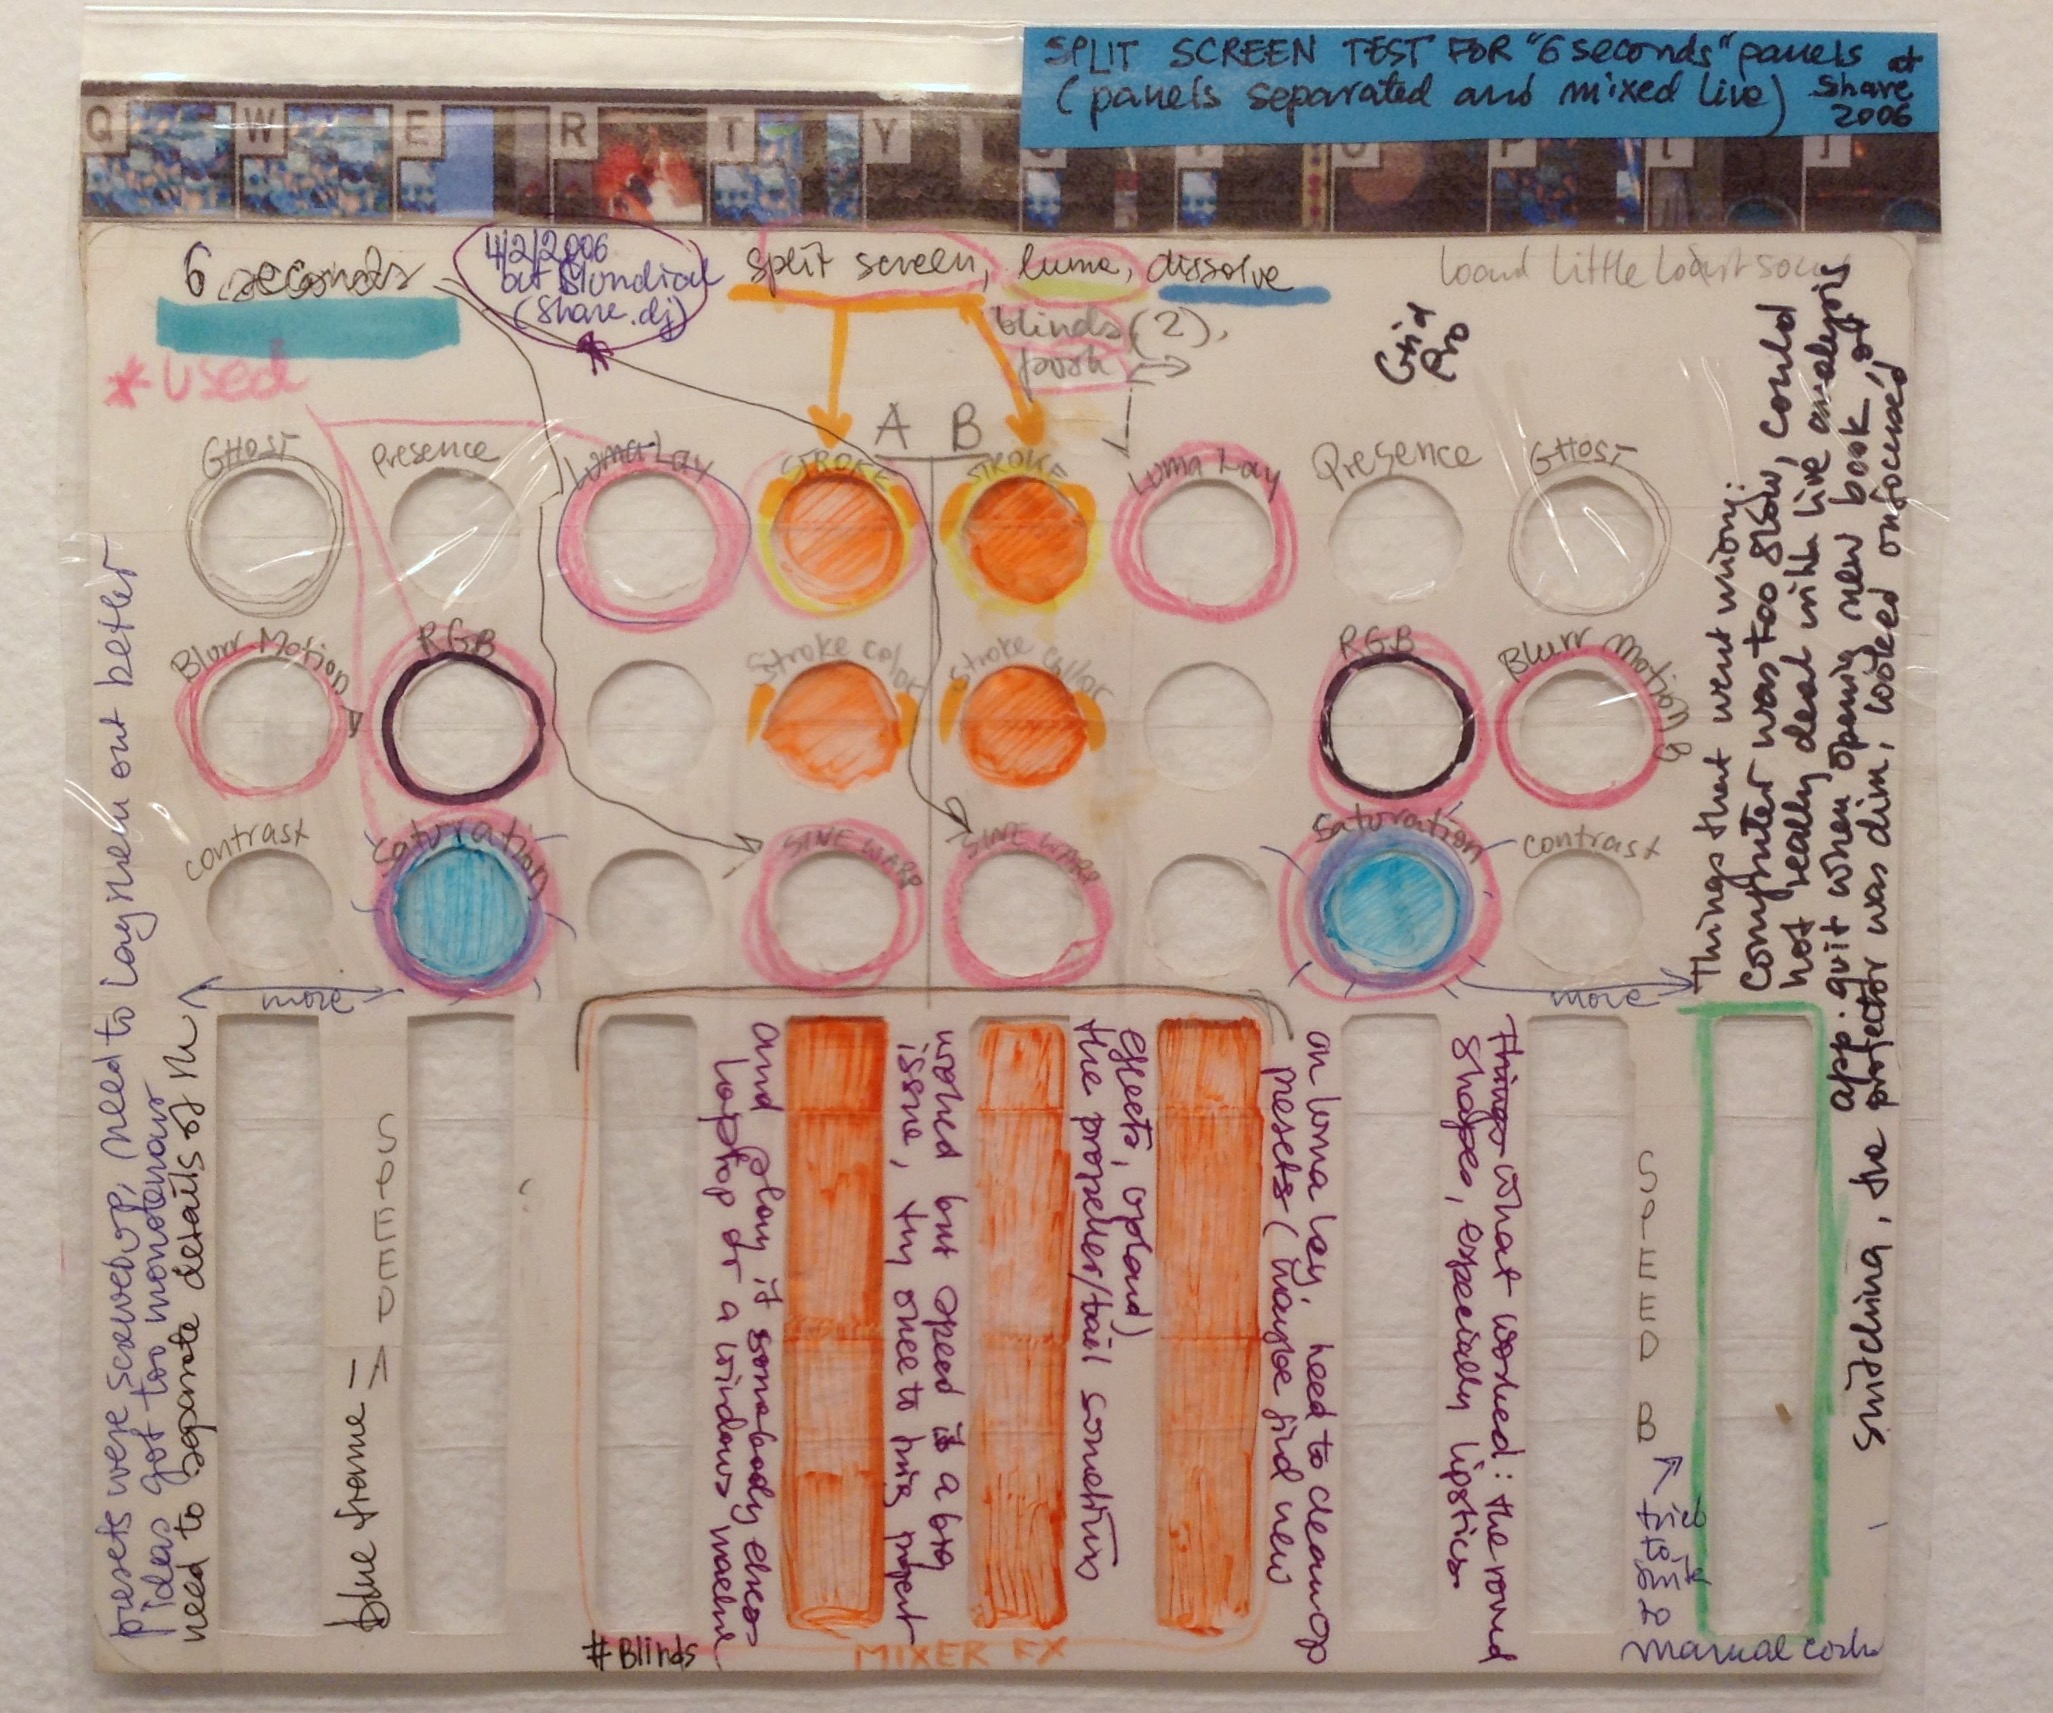 SPLIT SCREEN TEST FOR "6 seconds" panels at
(panels separated and mixed live) Share
2006
Q W E R T Y
P [ ]
6 seconds
4/2/2006
(share.dj)
split screen, luma, dissolve
blinds (2),
Grid
Pro
* used
A B
GHOST
presence
Luma Lay
STROKE
STROKE
Luma Lay
Presence
GHOST
Blurr Motion
RGB
Stroke color
Stroke collor
RGB
Blurr Motion
contrast
Saturation
SINE WARP
SINE WARP
Saturation
contrast
more
more
presets were screwed up, need to lay them out better
ideas got too monotonous
need to separate details of
SPEED A
blue frame =
and play it somebody elses
laptop or a windows machine
worked but speed is a big
issue, try once to bring project
effects, upload)
the propeller/tail sometims
on luma key, need to clean up
presets (maybe find new
Things what worked: the round
shapes, especially lipstics
SPEED B
tried
to
manual
Things that went wrong:
computer was too slow, could
not really deal with live analysis
app. quit when opening new book, or
switching, the projector was dim, looked onfocused
#Blinds
MIXER FX